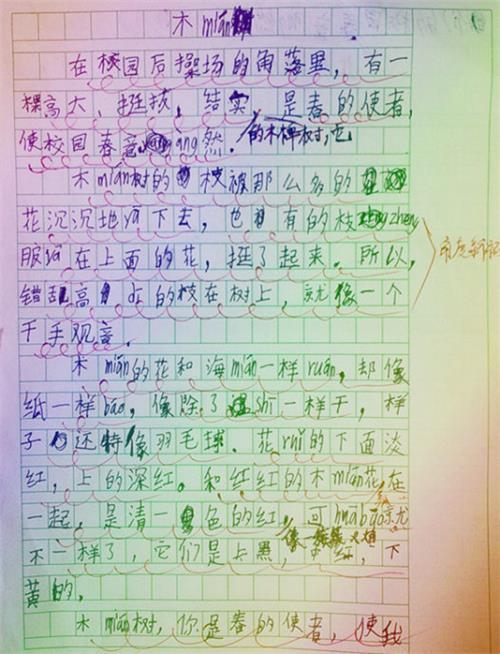 木mián
在校园后操场的角落里，有一
棵高大、挺拔、结实，是春的使者，
使校园春意àng然。的木棉树，也
木mián树的枝被那么多的
花沉沉地yā下去，也有的枝zhēng
服yā在上面的花，挺了起来。所以，
错乱高的枝在树上，就像一个
千手观音。
木mián的花和海mián一样ruǎn，却像
纸一样báo，像除了shī一样干，样
子还特像羽毛球。花ruǐ的下面淡
红，上的深红。和红红的木mián花在
一起，是清一色的红，可huābāo就
像一簇簇火焰
不一样了，它们是上黑，中红，下
黄的。
木mián树，你是春的使者，使我